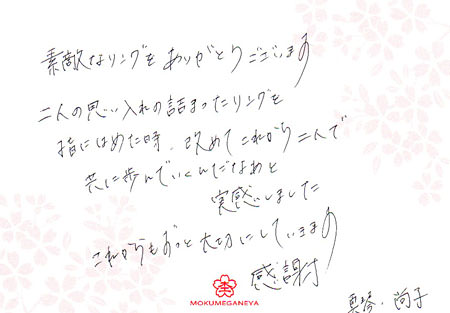 素敵なリングをありがとうございます
二人の思い入れの詰まったリングを
指にはめた時、改めてこれから二人で
共に歩んでいくんだなあと
実感しました
これからもずっと大切にしていきます
感謝
MOKUMEGANEYA
尚子